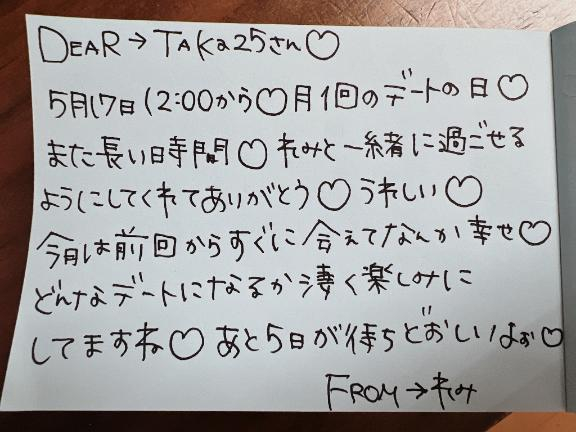 DEAR→TAKa25さん♡
5月17日12:00から♡月1回のデートの日♡
また長い時間♡れみと一緒に過ごせる
ようにしてくれてありがとう♡うれしい♡
今月は前回からすぐに会えてなんか幸せ♡
どんなデートになるか凄く楽しみに
してますね♡あと5日が待ちどおしいよぉ♡
FROM→れみ